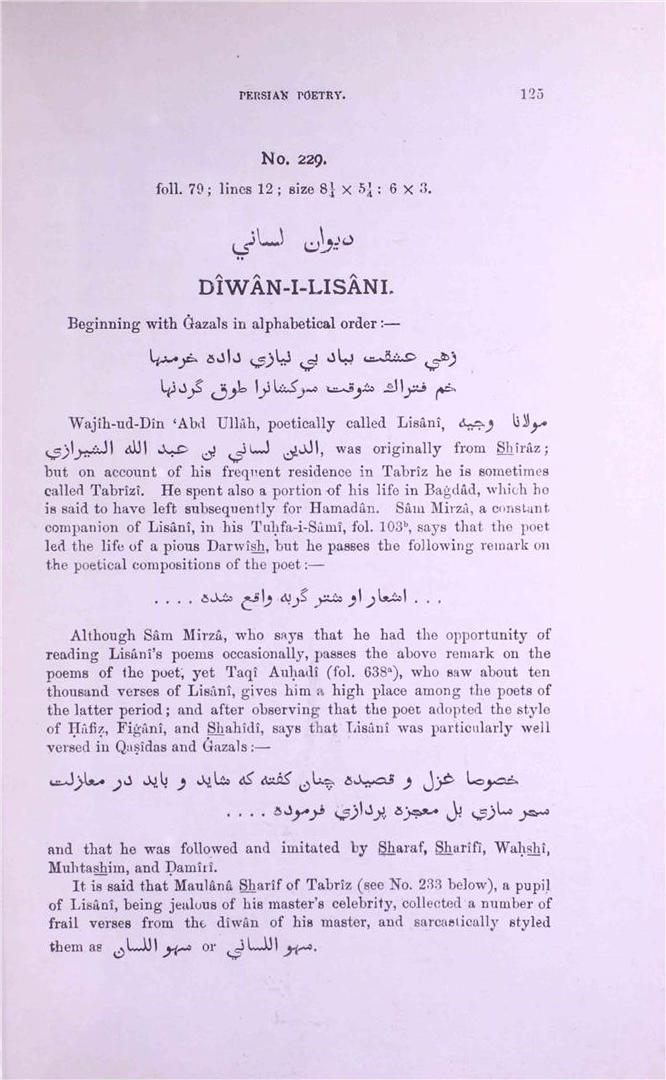 PERSIAN POETRY. 125
No. 229.
foll. 79; lines 12; size 8¼ × 5¼; 6 × 3.
ديوان لساني
DÎWÂN-I-LISÂNI.
Beginning with Ġazals in alphabetical order:—
زهي عشقت بباد بي نيازي داده خرمنها
خم فتراك شوقت سركشانرا طوق گردنها
Wajîh-ud-Dîn ‘Abd Ullâh, poetically called Lisânî, مولانا وجيه
الدين لساني بن عبد الله الشيرازي, was originally from Shîrâz;
but on account of his frequent residence in Tabrîz he is sometimes
called Tabrîzî. He spent also a portion of his life in Baġdâd, which he
is said to have left subsequently for Hamadân. Sâm Mirzâ, a constant
companion of Lisânî, in his Tuḥfa-i-Sâmî, fol. 103ᵇ, says that the poet
led the life of a pious Darwîsh, but he passes the following remark on
the poetical compositions of the poet:—
... اشعار او شتر گربه واقع شده ....
Although Sâm Mirzâ, who says that he had the opportunity of
reading Lisânî's poems occasionally, passes the above remark on the
poems of the poet, yet Taqî Auḥadî (fol. 638ᵃ), who saw about ten
thousand verses of Lisânî, gives him a high place among the poets of
the latter period; and after observing that the poet adopted the style
of Ḥâfiẓ, Fiġânî, and Shahîdî, says that Lisânî was particularly well
versed in Qaṣîdas and Ġazals:—
خصوصا غزل و قصيده چنان كفته كه شايد و بايد در معازلت
سحر سازي بل معجزه پردازي فرموده ....
and that he was followed and imitated by Sharaf, Sharîfî, Waḥshî,
Muhtashim, and Ḍamîrî.
It is said that Maulânâ Sharîf of Tabrîz (see No. 233 below), a pupil
of Lisânî, being jealous of his master's celebrity, collected a number of
frail verses from the dîwân of his master, and sarcastically styled
them as سهو اللسان or سهو اللساني.